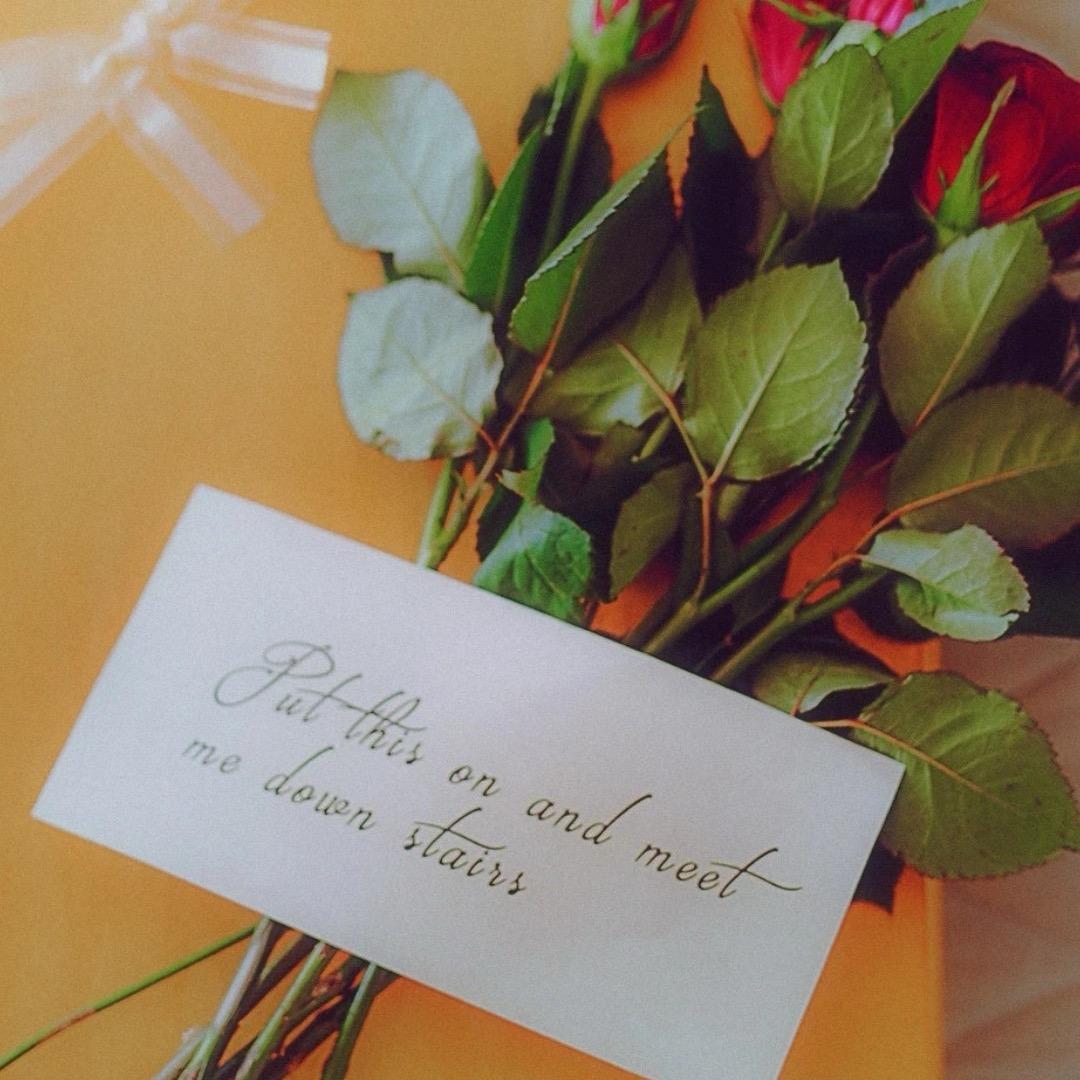 Put this on and meet
me down stairs